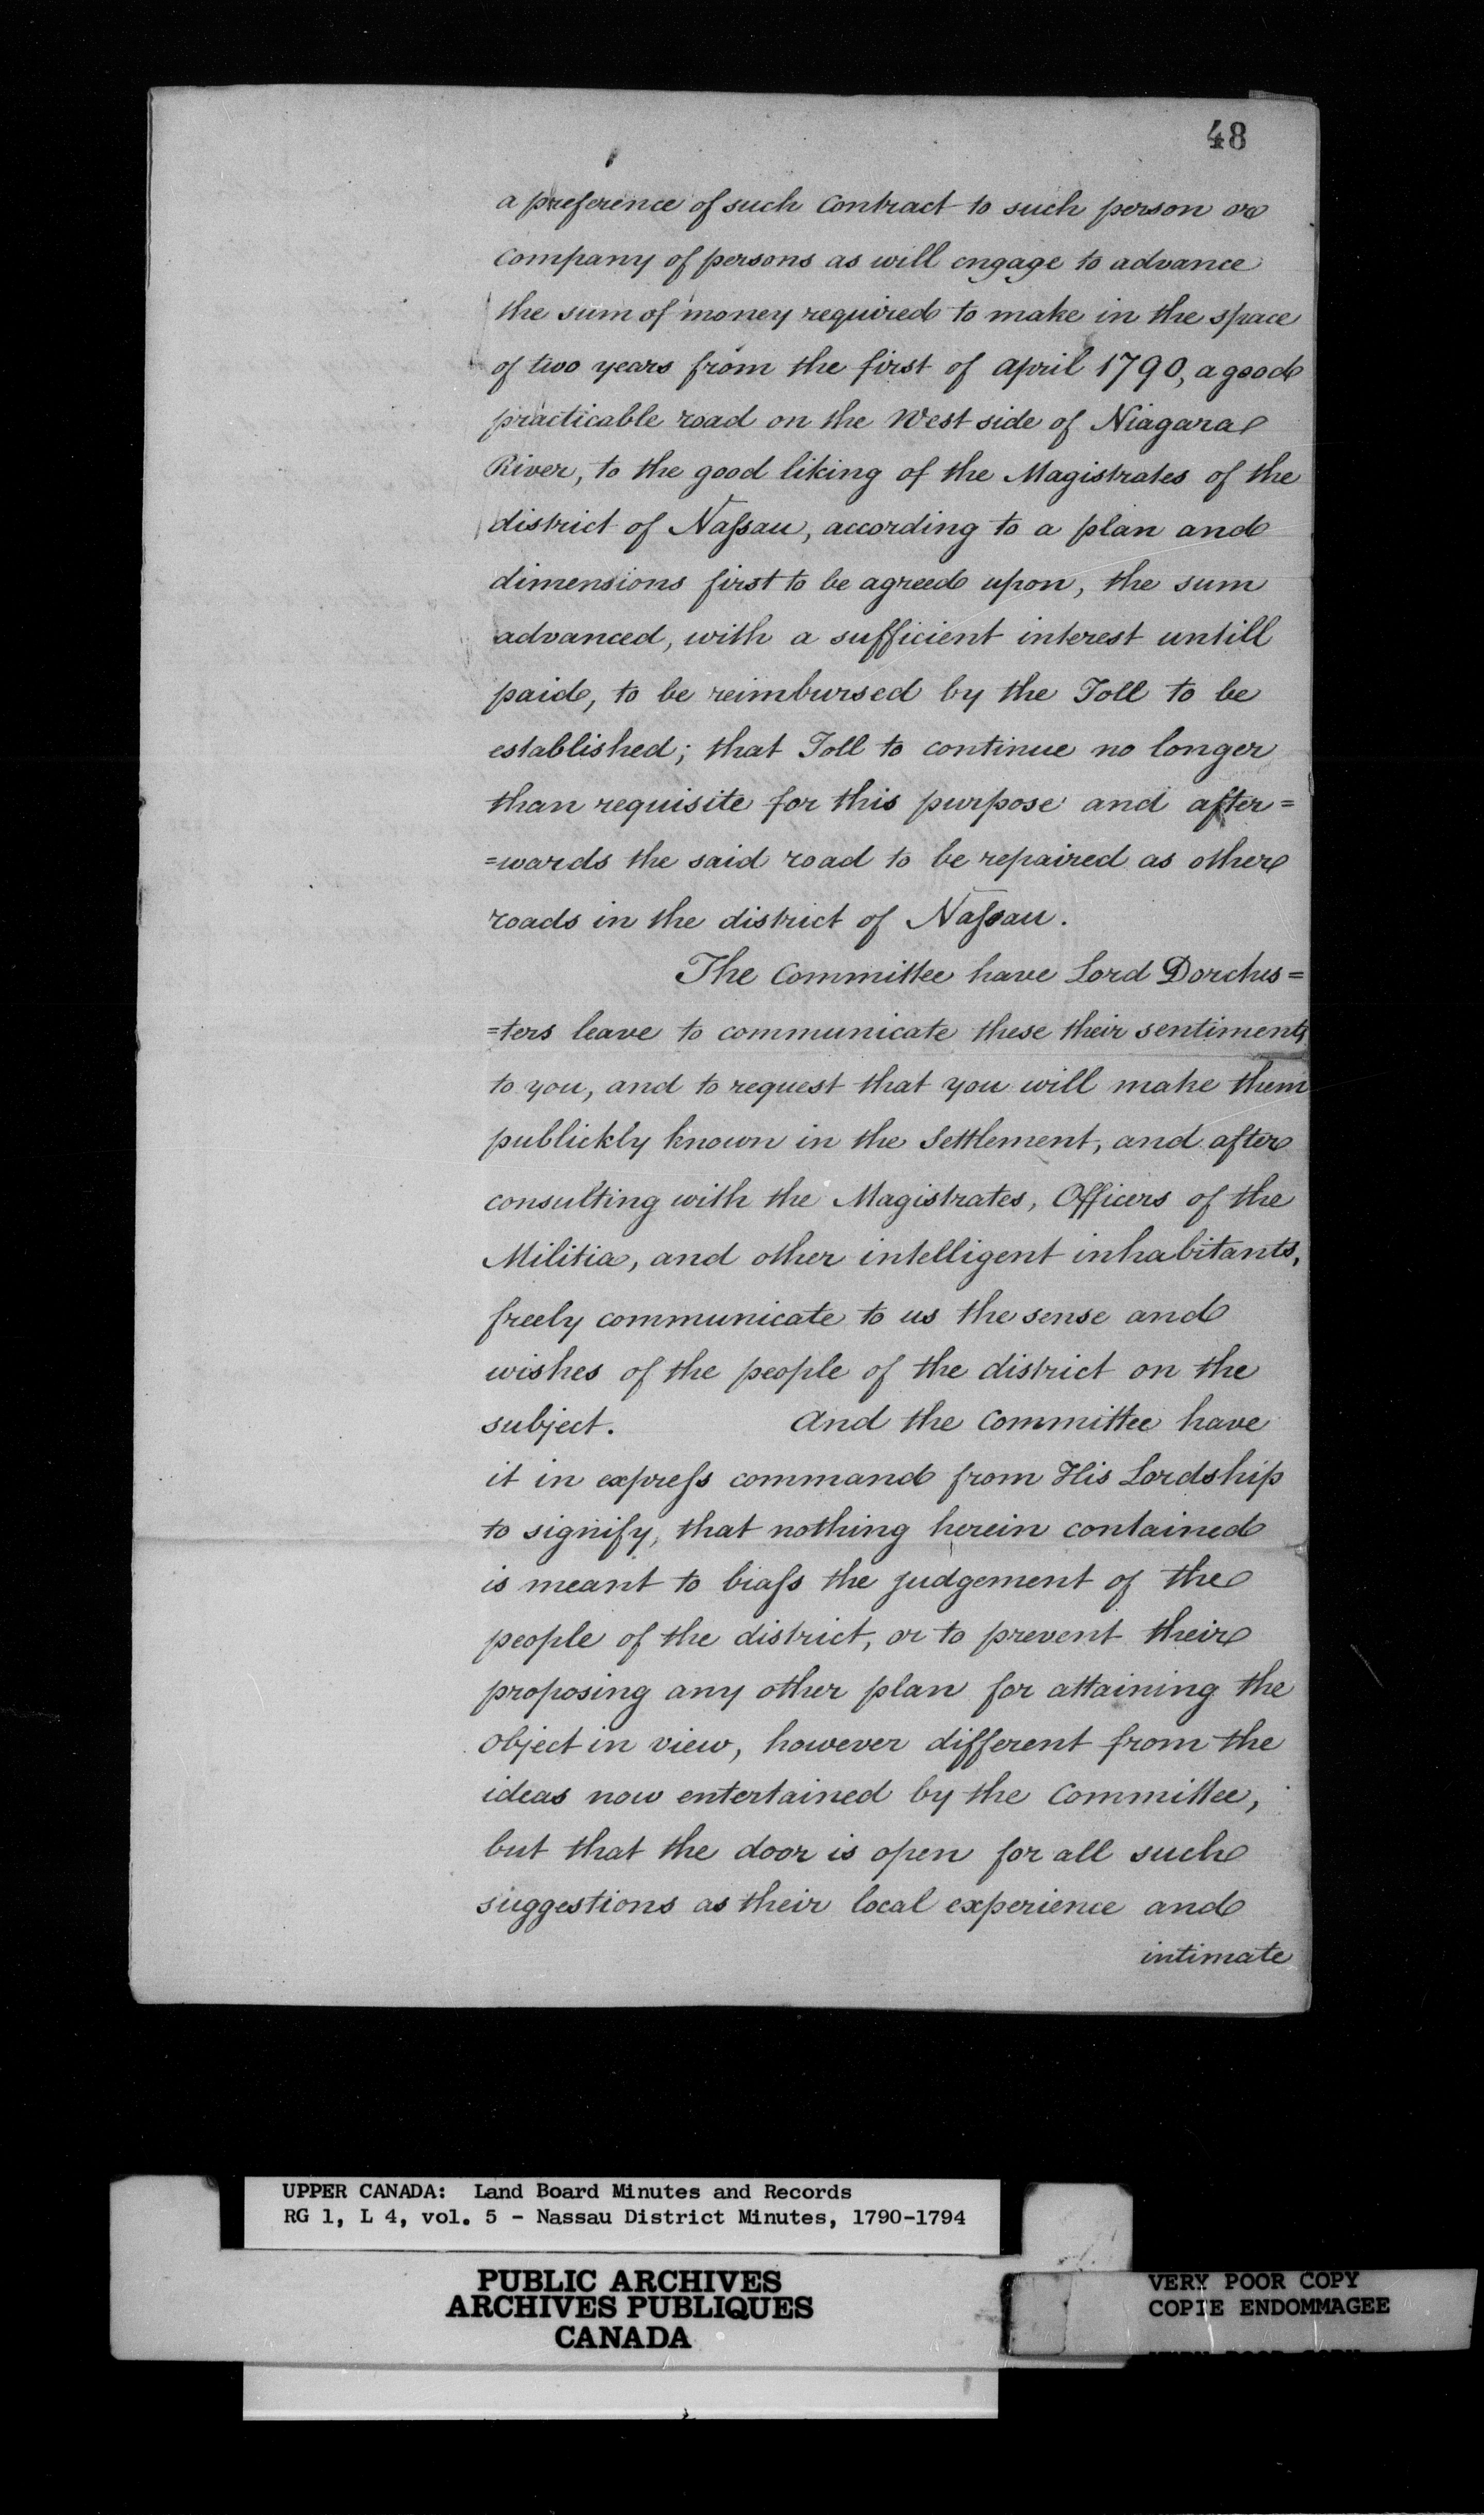 48
a preference of such contract to such person or
company of persons as will engage to advance
the sum of money required to make in the space
of two years from the first of april 1790, a good
practicable road on the West side of Niagara
River, to the good liking of the Magistrates of the
district of Naſsau, according to a plan and
dimensions first to be agreed upon, the sum
advanced, with a sufficient interest untill
paid, to be reimbursed by the Toll to be
established; that Toll to continue no longer
than requisite for this purpose and after=
=wards the said road to be repaired as other
roads in the district of Naſsau.
The Committee have Lord Dorches=
=ters leave to communicate these their sentiments
to you, and to request that you will make them
publickly known in the Settlement, and after
consulting with the Magistrates, Officers of the
Militia, and other intelligent inhabitants,
freely communicate to us the sense and
wishes of the people of the district on the
subject. And the Committee have
it in expreſs command from His Lordship
to signify, that nothing herein contained
is meant to biaſs the judgement of the
people of the district, or to prevent their
proposing any other plan for attaining the
object in view, however different from the
ideas now entertained by the Committee,
but that the door is open for all such
suggestions as their local experience and
intimate
UPPER CANADA: Land Board Minutes and Records
RG 1, L 4, vol. 5 - Nassau District Minutes, 1790-1794
PUBLIC ARCHIVES
ARCHIVES PUBLIQUES
CANADA
VERY POOR COPY
COPIE ENDOMMAGEE